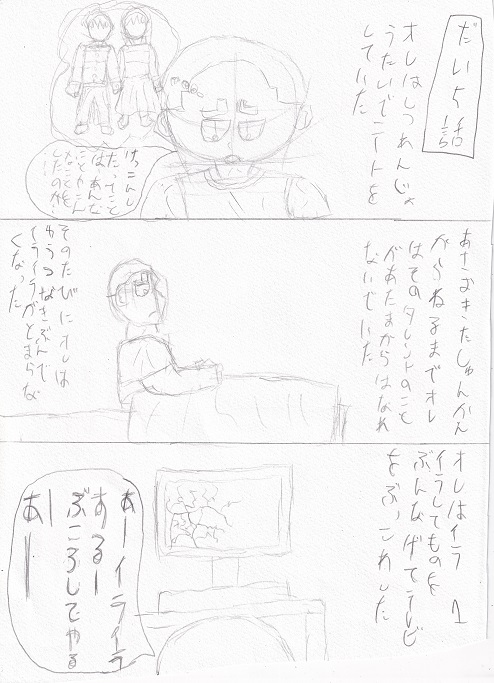 だい5話
オレはしつれんじょ
うたいでニートを
していた
けっこんし
たってこと
はあんな
ことやこん
なことを
したのか!
あさおきたしゅんかん
からねるまでオレ
はそのタレントのこと
があたまからはなれ
ないでいた
そのたびにオレは
ゆううつなきぶんで
イライラがとまらな
くなった
オレはイラ
イラしてものを
ぶんなげてテレビ
をぶっこわした
1
あーイライラ
するー
ぶころしてやる
あーー